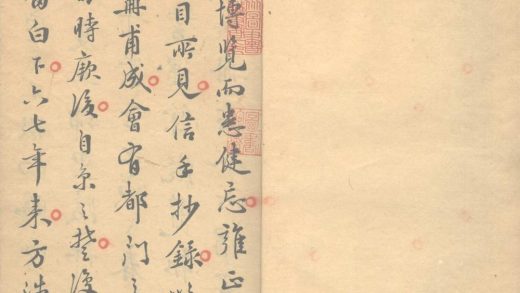 博覽而患健忘雖
目所見信手抄錄
冊甫成會有都門之
時厥後自京之楚復
白下六七年來方